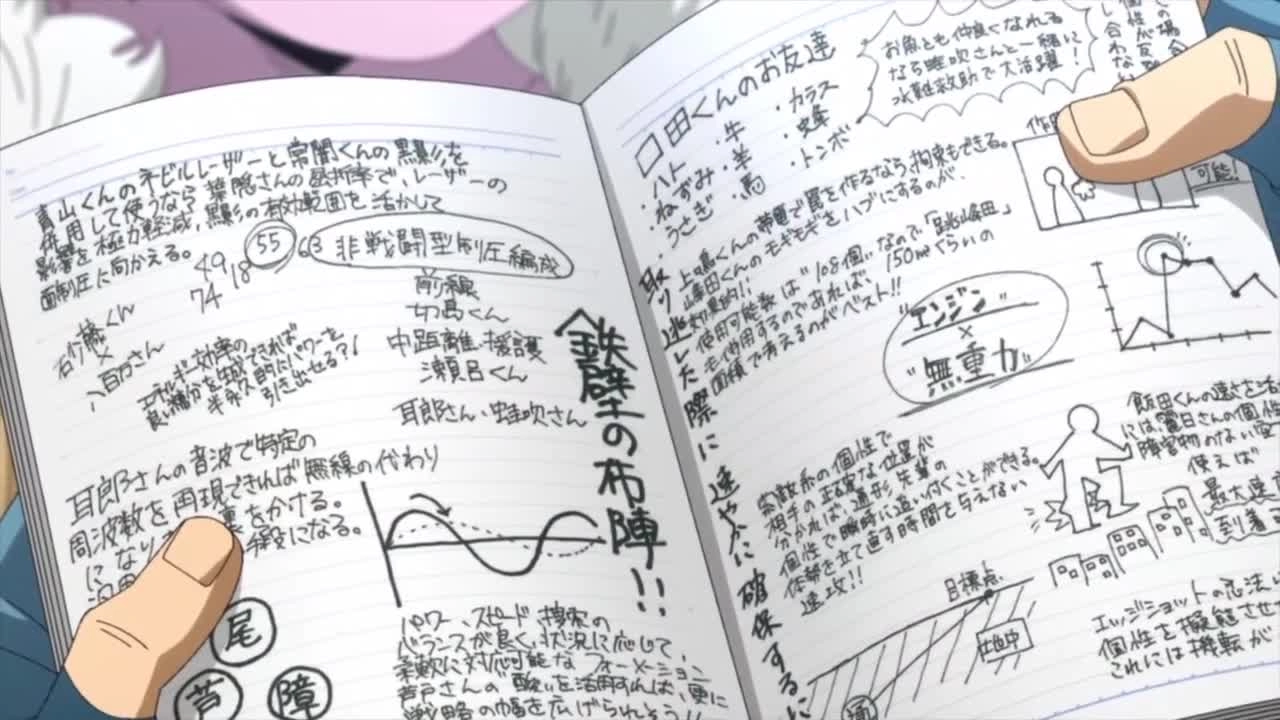 青山くんのネビルレーザーと常闇くんの黒影を
併用して使うなら葉隠さんの屈折率で、レーザーの
影響を極力軽減、黒影の有効範囲を活かして
面制圧に向かえる。
49 18 55 63
74
非戦闘型制圧編成
前線
切島くん
中距離・援護
瀬呂くん
耳郎さん・蛙吹さん
砂藤くん
×
八百万さん
エネルギー効率の
良い糖分を生成できれば
半永久的にパワーを
引き出せる?!
鉄壁の布陣!!
耳郎さんの音波で特定の
周波数を再現できれば無線の代わり
になり
をかける。
になる。
尾
芦
障
パワー、スピード、捜索の
バランスが良く、状況に応じて、
柔軟に対応可能なフォーメーション
芦戸さんの酸を活用すれば、更に
戦略の幅を広げられそう!!
口田くんのお友達
・ハト
・ねずみ
・うさぎ
・牛
・羊
・馬
・カラス
・蜂
・トンボ
お魚とも仲良くなれる
なら蛙吹さんと一緒に
水難救助で大活躍!
の場合
個性が
合わない
可能!
上鳴くんの帯電で罠を作るなら、拘束もできる。
峰田くんのモギモギをハブにするのが、
効果的!!
使用可能数は"108個"なので「
も使用するのであれば、150㎡ぐらいの
面積で考えるのがベスト!!
"エンジン"
×
"無重力"
取り逃した際に速やかに確保するに
索敵系の個性で
相手の正確な位置が
分かれば、通形先輩の
個性で瞬時に追い付くことができる。
体勢を立て直す時間を与えない
速攻!!
飯田くんの速さを活
には麗日さんの個性
障害物のない空
使えば
最大速
到着
目標点
地中
通
エッジショットの忍法
個性を擬態させ
これには機転が